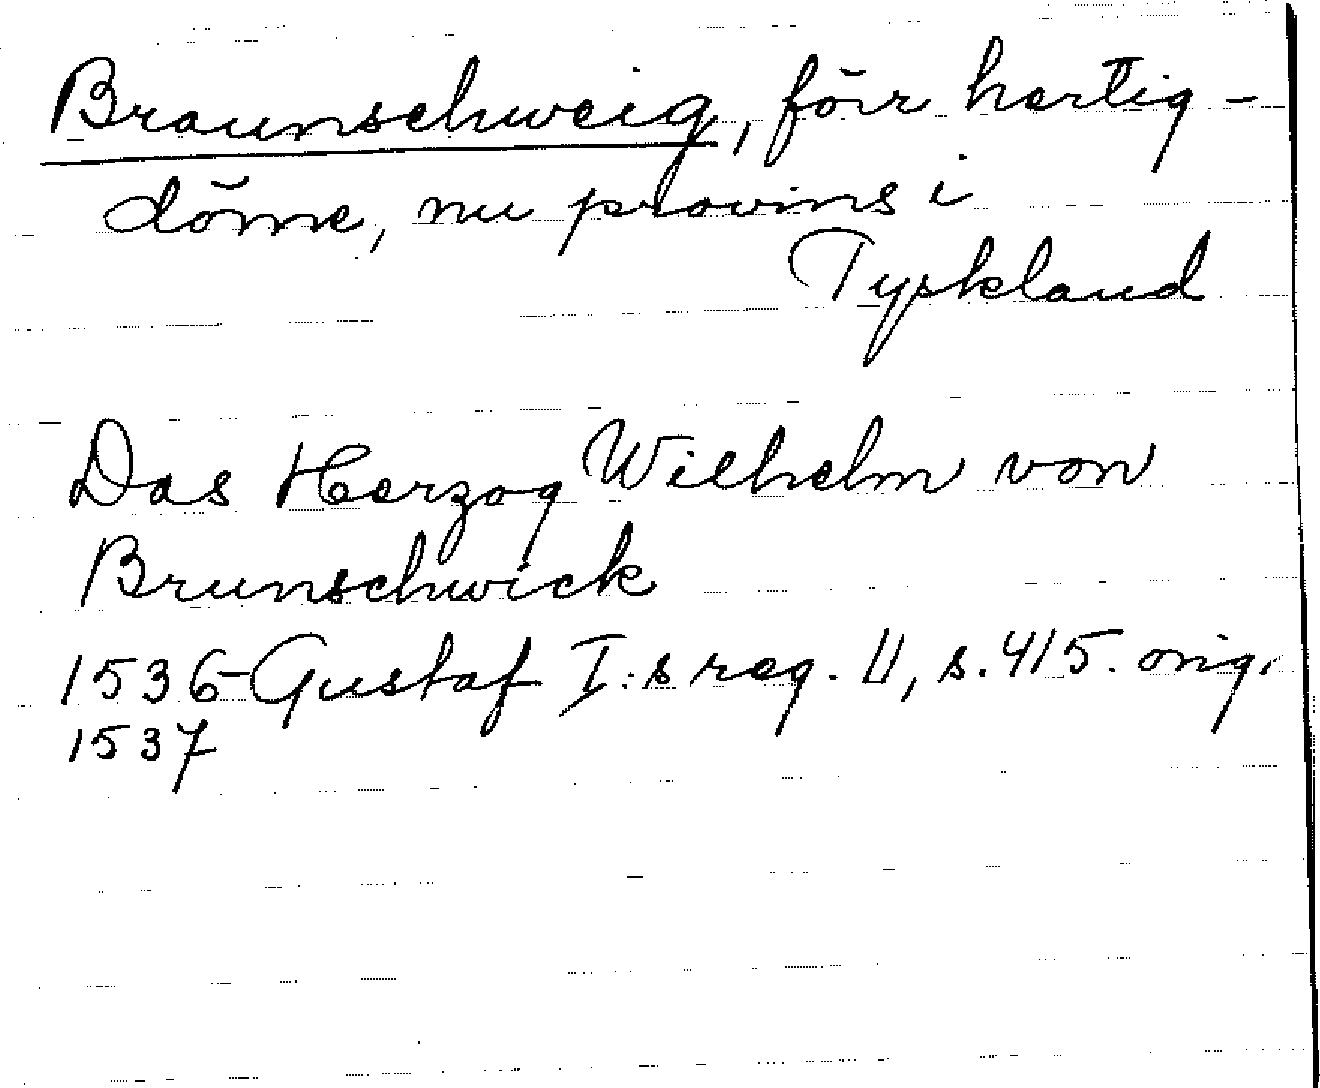 Braunschweig, förr hertig-
döme, nu provins i
Tyskland
Das Herzog Wilhelm von
Brunschwick
1536- Gustaf I:s reg. 11, s. 415. orig.
1537